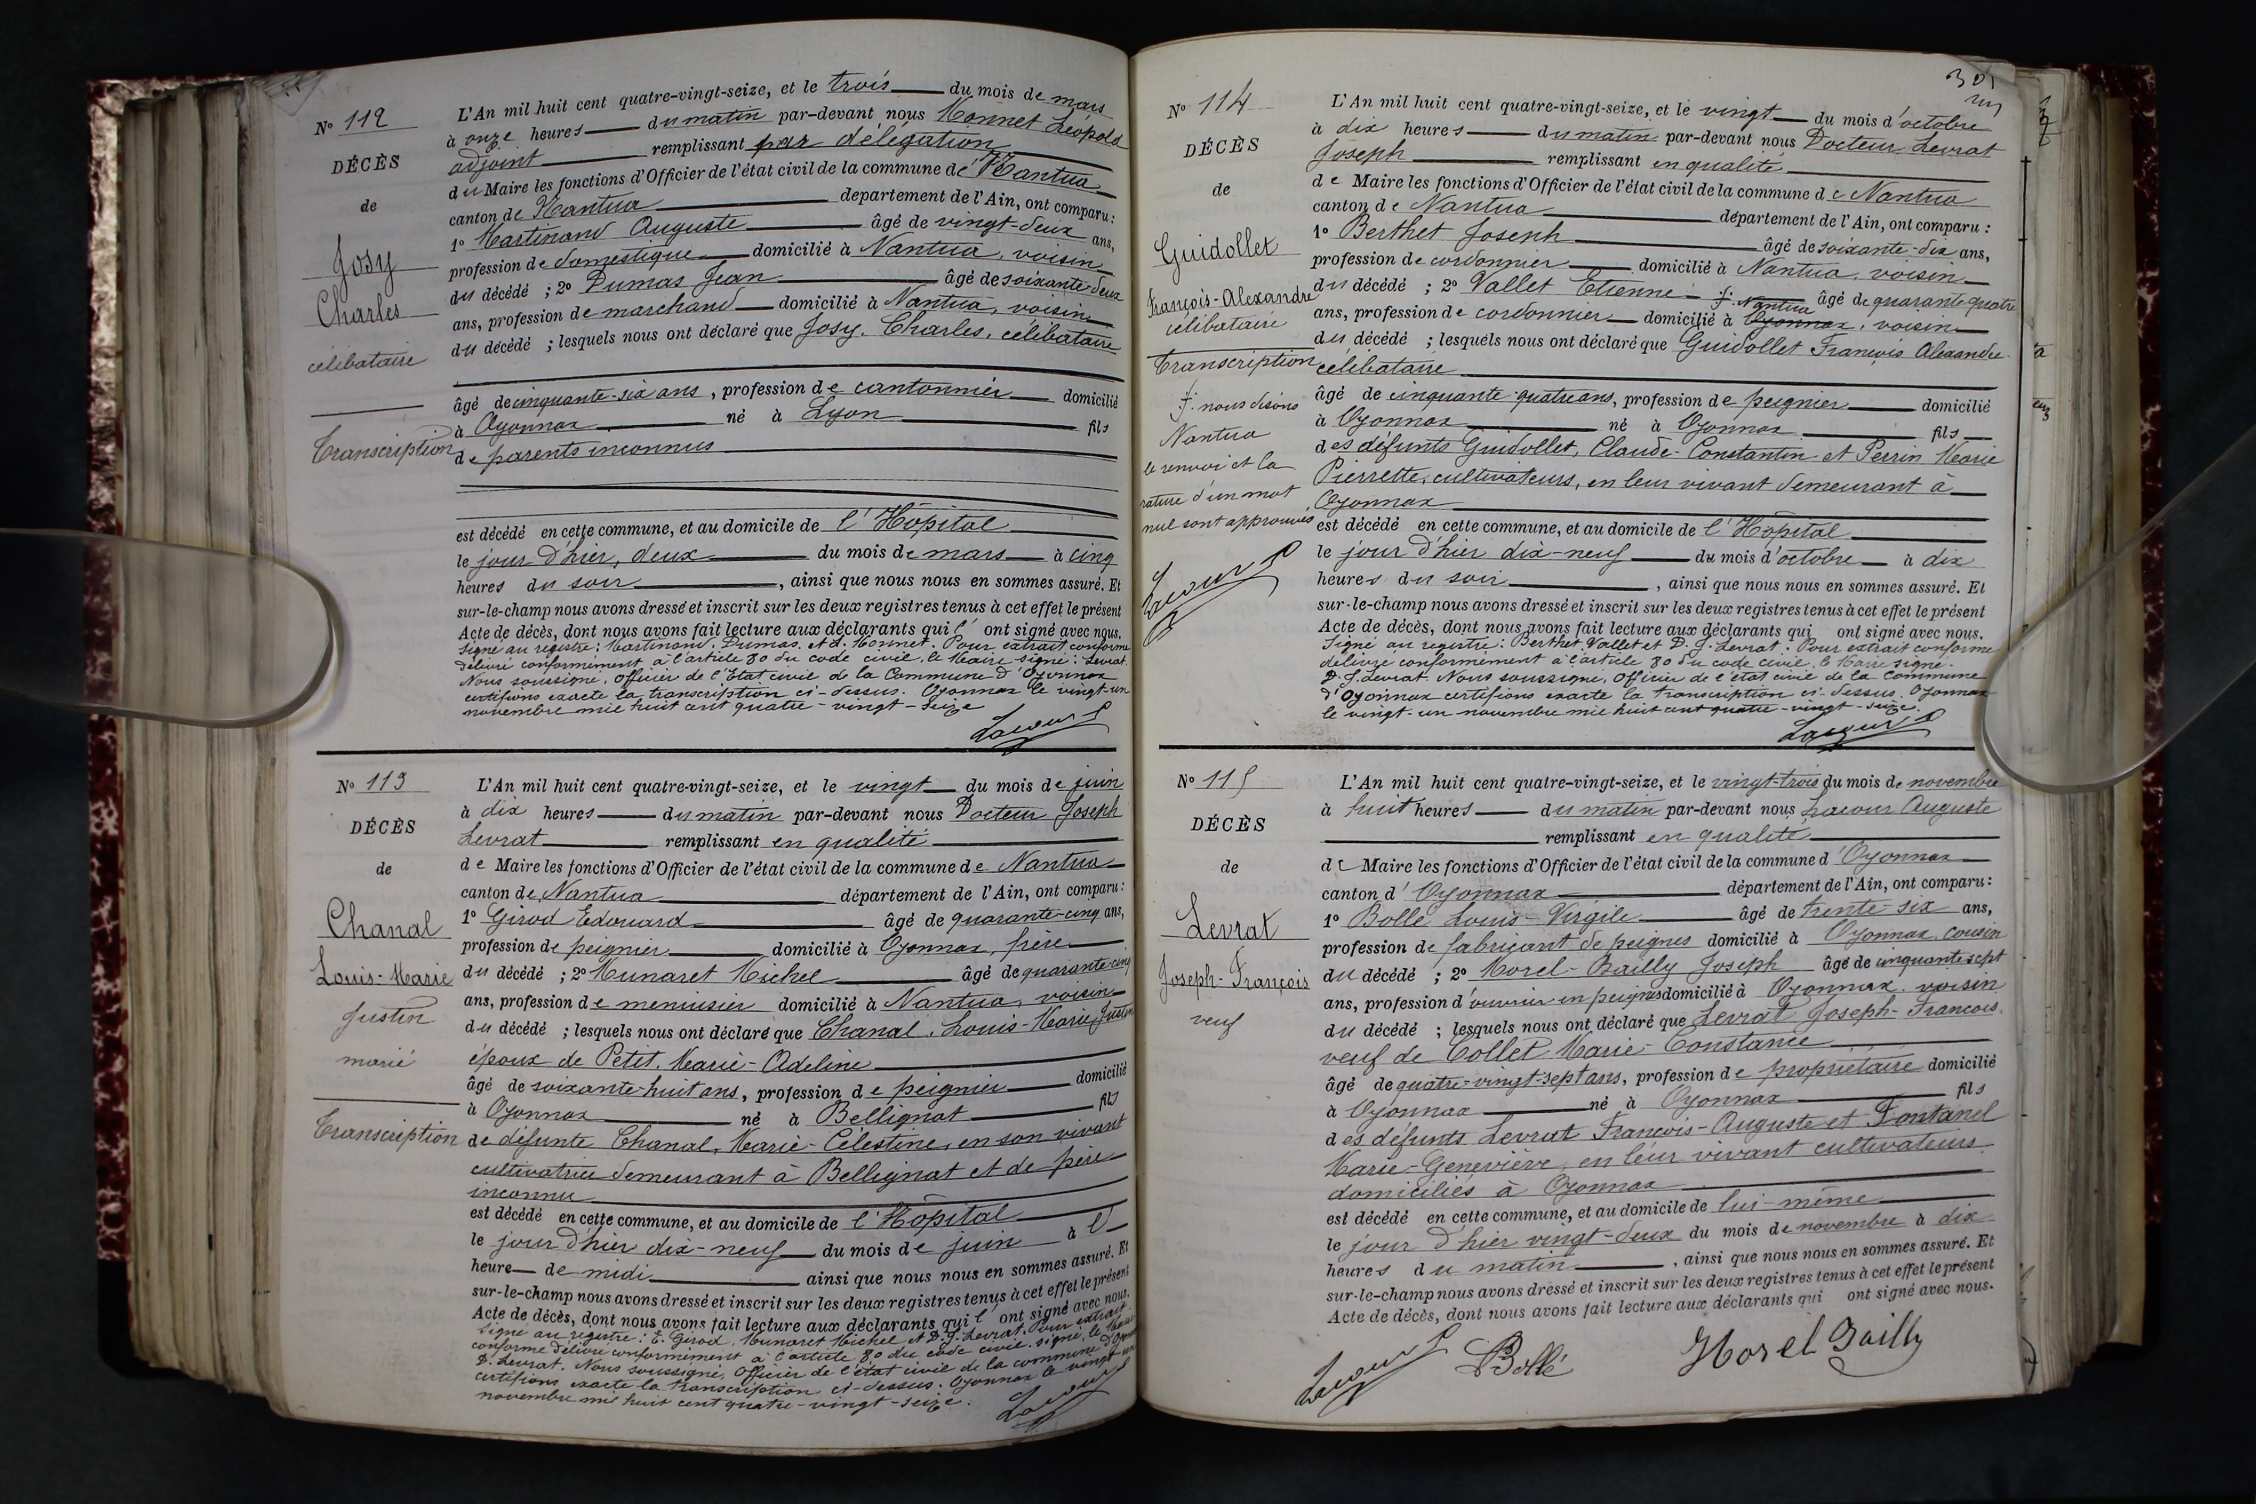 N° 112
DÉCÈS
de
Josy
Charles
célibataire
Transcription
L'An mil huit cent quatre-vingt-seize, et le trois du mois de mars
à onze heures du matin par-devant nous Monnet Léopold
adjoint remplissant par délégation
du Maire les fonctions d'Officier de l'état civil de la commune de Nantua
canton de Nantua département de l'Ain, ont comparu :
1° Martinand Auguste âgé de vingt-deux ans,
profession de domestique domicilié à Nantua, voisin
du décédé ; 2° Dumas Jean âgé de soixante-deux
ans, profession de marchand domicilié à Nantua, voisin
du décédé ; lesquels nous ont déclaré que Josy, Charles, célibataire
âgé de cinquante-six ans, profession de cantonnier domicilié
à Oyonnax né à Lyon fils
de parents inconnus
est décédé en cette commune, et au domicile de l'Hôpital
le jour d'hier, deux du mois de mars à cinq
heures du soir, ainsi que nous nous en sommes assuré. Et
sur-le-champ nous avons dressé et inscrit sur les deux registres tenus à cet effet le présent
Acte de décès, dont nous avons fait lecture aux déclarants qui l' ont signé avec nous.
Signé au registre : Martinand, Dumas, et L. Monnet. Pour extrait conforme
délivré conformément à l'article 80 du code civil, le Maire signé : Levrat.
Nous soussigné, Officier de l'Etat civil de la Commune d'Oyonnax
certifions exacte la transcription ci-dessus. Oyonnax le vingt-un
novembre mil huit cent quatre-vingt-seize
Lacour
N° 113
DÉCÈS
de
Chanal
Louis-Marie
Justin
marié
Transcription
L'An mil huit cent quatre-vingt-seize, et le vingt du mois de juin
à dix heures du matin par-devant nous Docteur Joseph
Levrat remplissant en qualité
de Maire les fonctions d'Officier de l'état civil de la commune de Nantua
canton de Nantua département de l'Ain, ont comparu :
1° Girod Edouard âgé de quarante-cinq ans,
profession de peignier domicilié à Oyonnax, frère
du décédé ; 2° Munaret Michel âgé de quarante-cinq
ans, profession de menuisier domicilié à Nantua, voisin
du décédé ; lesquels nous ont déclaré que Chanal, Louis-Marie Justin
époux de Petit, Marie-Adeline
âgé de soixante-huit ans, profession de peignier domicilié
à Oyonnax né à Bellignat fils
de défunte Chanal, Marie-Célestine, en son vivant
cultivatrice demeurant à Bellignat et de père
inconnu
est décédé en cette commune, et au domicile de l'Hôpital
le jour d'hier dix-neuf du mois de juin à l'
heure de midi ainsi que nous nous en sommes assuré. Et
sur-le-champ nous avons dressé et inscrit sur les deux registres tenus à cet effet le présent
Acte de décès, dont nous avons fait lecture aux déclarants qui l' ont signé avec nous.
Signé au registre : E. Girod, Munaret Michel et D. J. Levrat. Pour extrait
conforme délivré conformément à l'article 80 du code civil. signé, le Maire
D. Levrat. Nous soussigné, Officier de l'état civil de la commune d'Oyonnax
certifions exacte la transcription ci-dessus. Oyonnax le vingt-un
novembre mil huit cent quatre-vingt-seize.
Lacour
301
N° 114
DÉCÈS
de
Guidollet
François-Alexandre
célibataire
Transcription
f. nous disons
Nantua
le renvoi et la
rature d'un mot
nul sont approuvés
Lacour
L'An mil huit cent quatre-vingt-seize, et le vingt du mois d'octobre
à dix heures du matin par-devant nous Docteur Levrat
Joseph remplissant en qualité
de Maire les fonctions d'Officier de l'état civil de la commune de Nantua
canton de Nantua département de l'Ain, ont comparu :
1° Berthet Joseph âgé de soixante-dix ans,
profession de cordonnier domicilié à Nantua, voisin
du décédé ; 2° Vallet Etienne âgé de quarante-quatre
ans, profession de cordonnier domicilié à f. Nantua Oyonnax, voisin
du décédé ; lesquels nous ont déclaré que Guidollet François Alexandre
célibataire
âgé de cinquante-quatre ans, profession de peignier domicilié
à Oyonnax né à Oyonnax fils
des défunts Guidollet, Claude-Constantin et Perrin Marie
Pierrette, cultivateurs, en leur vivant demeurant à
Oyonnax
est décédé en cette commune, et au domicile de l'Hôpital
le jour d'hier dix-neuf du mois d'octobre à dix
heures du soir, ainsi que nous nous en sommes assuré. Et
sur-le-champ nous avons dressé et inscrit sur les deux registres tenus à cet effet le présent
Acte de décès, dont nous avons fait lecture aux déclarants qui ont signé avec nous.
Signé au registre : Berthet, Vallet et D. J. Levrat. Pour extrait conforme
délivré conformément à l'article 80 du code civil, le Maire signé.
D. J. Levrat. Nous soussigné, Officier de l'état civil de la Commune
d'Oyonnax certifions exacte la transcription ci-dessus. Oyonnax
le vingt-un novembre mil huit cent quatre-vingt-seize.
Lacour
N° 115
DÉCÈS
de
Levrat
Joseph-François
veuf
L'An mil huit cent quatre-vingt-seize, et le vingt-trois du mois de novembre
à huit heures du matin par-devant nous Lacour Auguste
remplissant en qualité
de Maire les fonctions d'Officier de l'état civil de la commune d'Oyonnax
canton d'Oyonnax département de l'Ain, ont comparu :
1° Bollé Louis-Virgile âgé de trente-six ans,
profession de fabricant de peignes domicilié à Oyonnax, cousin
du décédé ; 2° Morel-Bailly Joseph âgé de cinquante sept
ans, profession d'ouvrier en peignes domicilié à Oyonnax, voisin
du décédé ; lesquels nous ont déclaré que Levrat Joseph-François,
veuf de Collet Marie-Constance
âgé de quatre-vingt-sept ans, profession de propriétaire domicilié
à Oyonnax né à Oyonnax fils
des défunts Levrat François-Auguste et Fontanel
Marie-Geneviève, en leur vivant cultivateurs
domiciliés à Oyonnax
est décédé en cette commune, et au domicile de lui-même
le jour d'hier vingt-deux du mois de novembre à dix
heures du matin, ainsi que nous nous en sommes assuré. Et
sur-le-champ nous avons dressé et inscrit sur les deux registres tenus à cet effet le présent
Acte de décès, dont nous avons fait lecture aux déclarants qui ont signé avec nous.
Lacour LBollé Morel Bailly